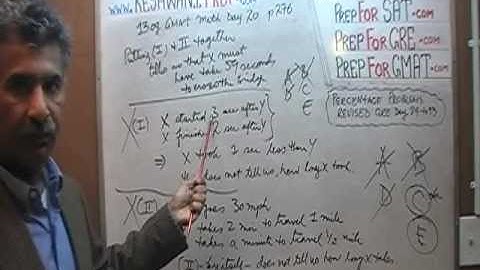 WWW.KESHWANI PREP.COM
13 of GMAT Math Day 20 p276
Putting (I) & II together
tells us that X must
have take 59 seconds
to cross the bridge
PREP FOR SAT.com
PREP FOR GRE.com
PREP FOR GMAT.com
PERCENTAGE PROBLEMS
REVISED GREE Day 24 #93
A B
D C
E
X (I) X started 3 sec after Y
X finished 2 sec after Y
⇒ X took 1 sec less than Y
does not tell us, how long X took
A B
D C
E
X (II) goes 30 mph
takes 2 min to travel 1 mile
takes a minute to travel 1/2 mile
(II) by itself - does not tell us how long X takes